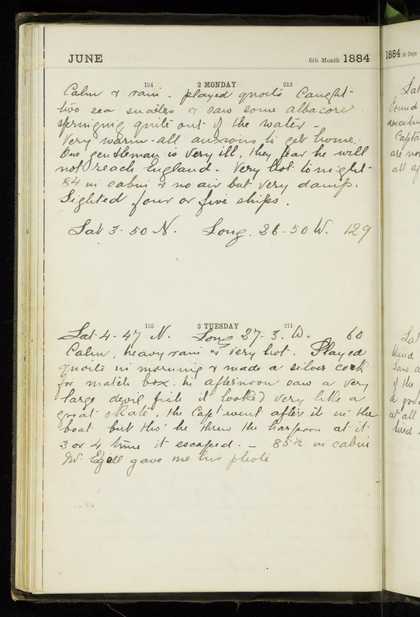 JUNE 6th Month 1884
154 2 MONDAY 212
Calm & rain - played quoits Caught
two sea snakes & saw some albacore
springing quite out of the water -
Very warm - all anxious to get home.
One gentleman is very ill, they fear he will
not reach England. Very hot to night -
84 in cabin & no air but very damp.
Sighted four or five ships.
Lat 3-50 N. Long. 26-50 W. 129
155 3 TUESDAY 211
Lat-4-47 N. Long 27-3. W. 60
Calm, heavy rain & very hot. Played
quoits in morning & made a silver
for match box. in afternoon saw a very
large devil fish it looked very like a
great skate, the Capt went after it in the
boat but tho' he threw the harpoon at it
3 or 4 times it escaped. - 85½ in cabin
Mr. gave me his photo
1884